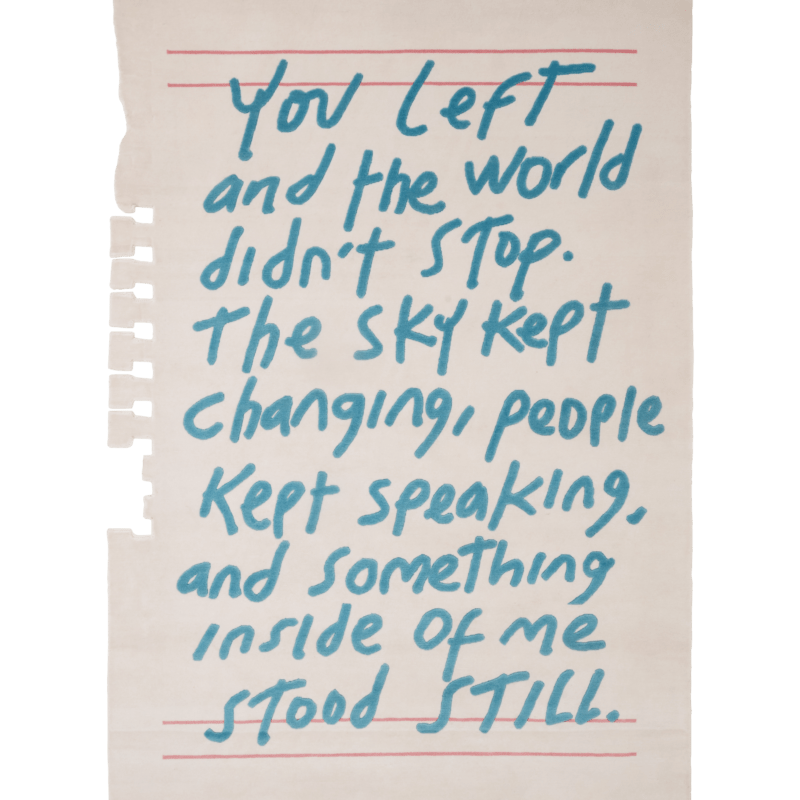 You left
and the world
didn't stop.
The sky kept
changing, people
kept speaking,
and something
inside of me
stood still.